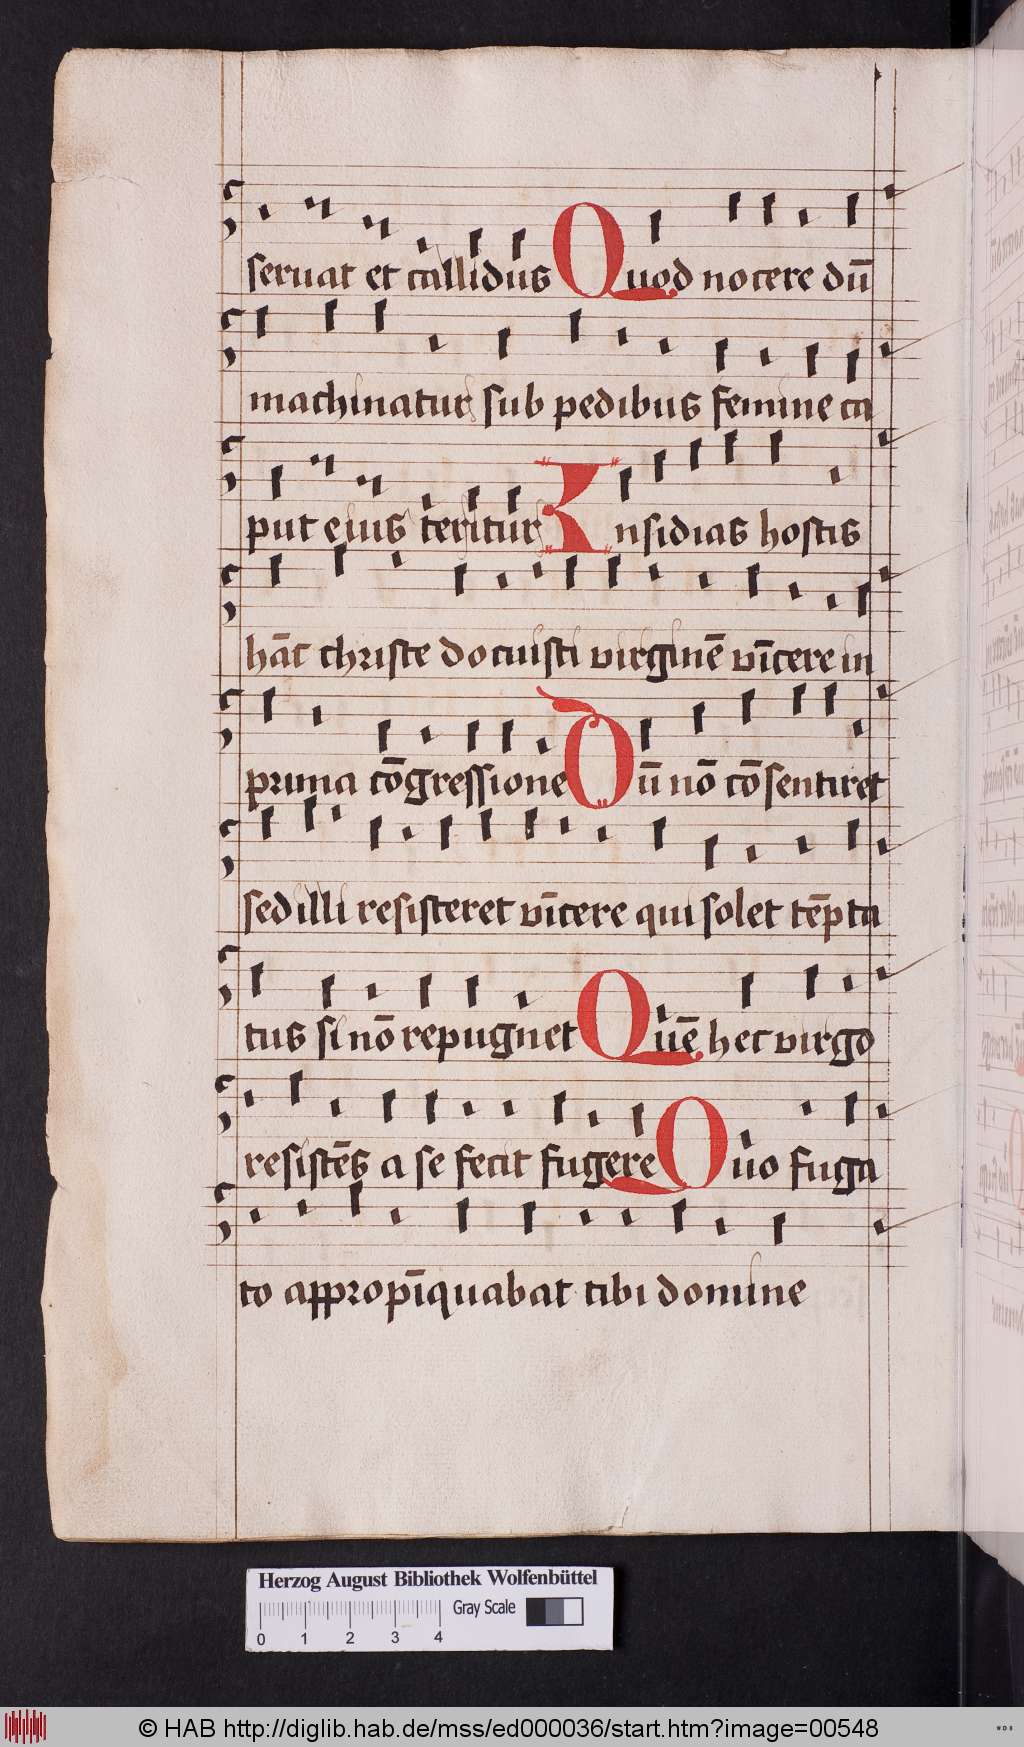 seruat et callidus Quod nocere dū
machinatur sub pedibus femine ca
put eius teritur Insidias hostis
hāc christe docuisti virginē vīcere in
prima cōgressione Dū nō cōsentiret
sed illi resisteret vīcere qui solet tēpta
tus si nō repugnet Quē hec virgo
resistēs a se fecit fugere Quo fuga
to appropīquabat tibi domine
Herzog August Bibliothek Wolfenbüttel
Gray Scale
0 1 2 3 4
© HAB http://diglib.hab.de/mss/ed000036/start.htm?image=00548